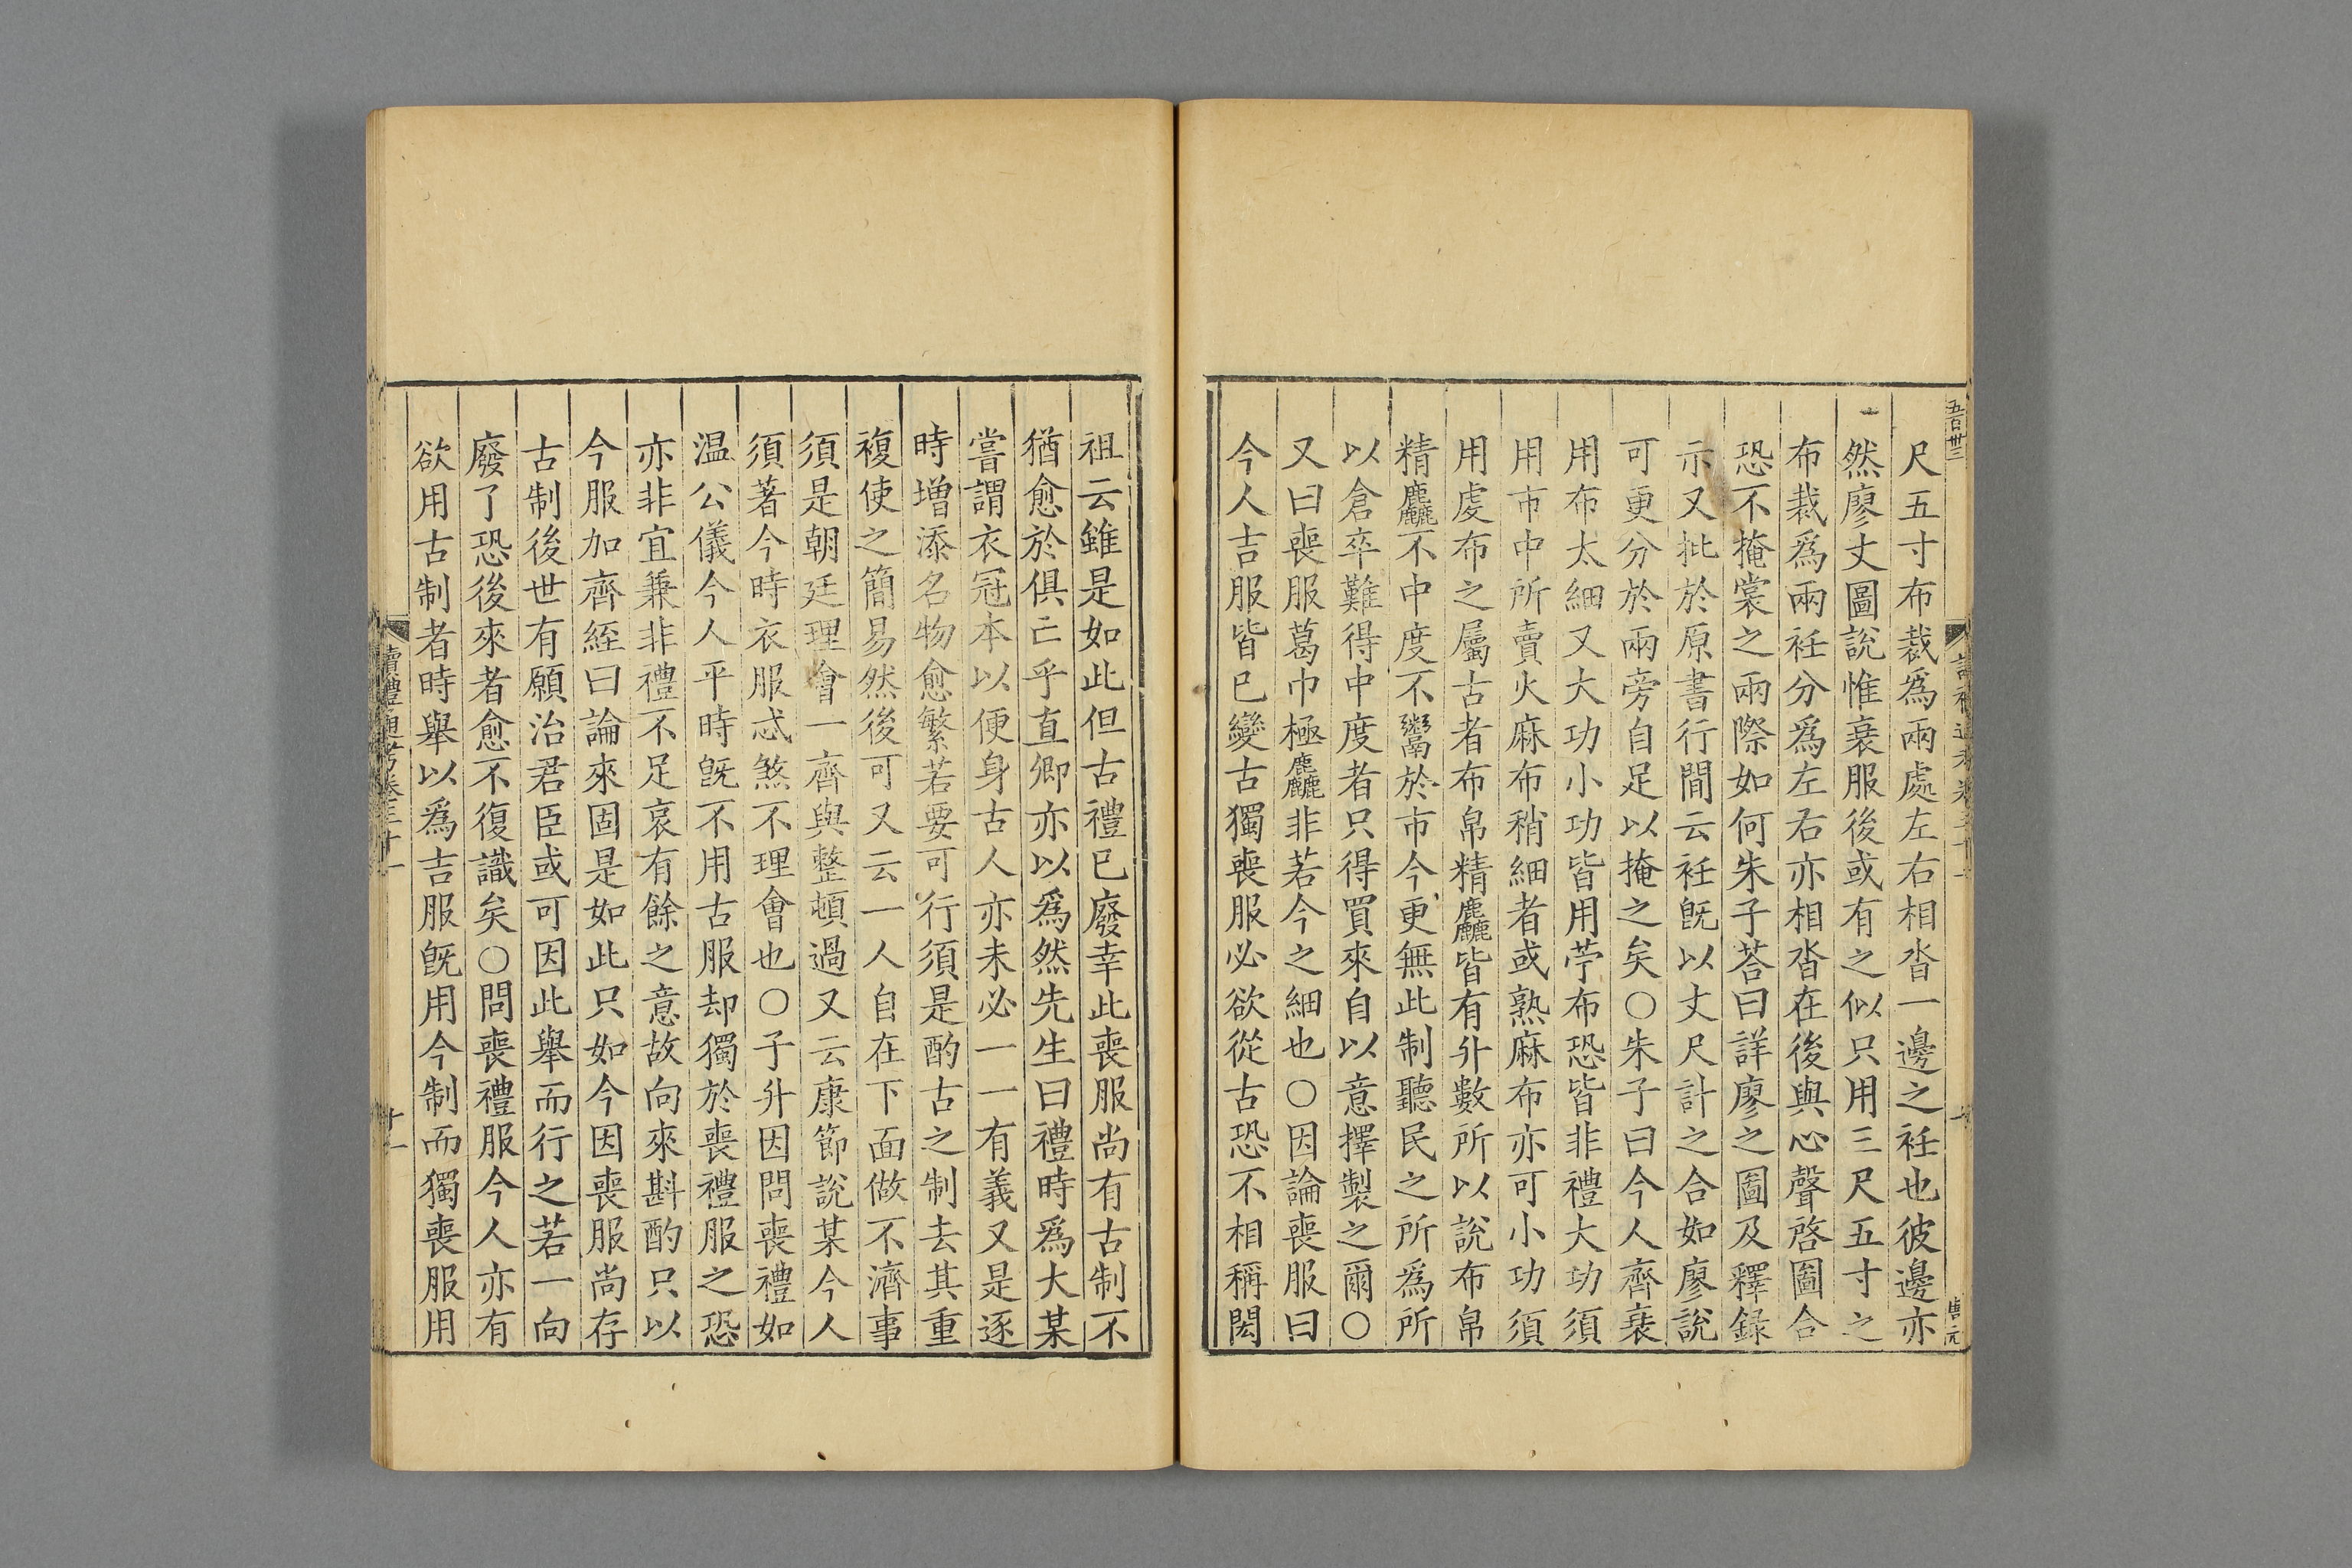 五百卅三
尺五寸布裁爲兩處左右相沓一邊之衽也彼邊亦
然廖丈圖說惟衰服後或有之似只用三尺五寸之
布裁爲兩衽分爲左右亦相沓在後與心聲啓圖合
恐不掩裳之兩際如何朱子荅曰詳廖之圖及釋錄
示又批於原書行間云衽旣以丈尺計之合如廖說
可更分於兩旁自足以掩之矣○朱子曰今人齊衰
用布太細又大功小功皆用苧布恐皆非禮大功須
用市中所賣火麻布稍細者或熟麻布亦可小功須
用虔布之屬古者布帛精麤皆有升數所以說布帛
精麤不中度不鬻於市今更無此制聽民之所爲所
以倉卒難得中度者只得買來自以意擇製之爾○
又曰喪服葛巾極麤非若今之細也○因論喪服曰
今人吉服皆已變古獨喪服必欲從古恐不相稱閎
祖云雖是如此但古禮已廢幸此喪服尚有古制不
猶愈於俱亡乎直卿亦以爲然先生曰禮時爲大某
嘗謂衣冠本以便身古人亦未必一一有義又是逐
時增添名物愈繁若要可行須是酌古之制去其重
複使之簡易然後可又云一人自在下面做不濟事
須是朝廷理會一齊與整頓過又云康節說某今人
須著今時衣服忒煞不理會也○子升因問喪禮如
溫公儀今人平時旣不用古服却獨於喪禮服之恐
亦非宜兼非禮不足哀有餘之意故向來斟酌只以
今服加齊絰曰論來固是如此只如今因喪服尚存
古制後世有願治君臣或可因此舉而行之若一向
廢了恐後來者愈不復識矣○問喪禮服今人亦有
欲用古制者時舉以爲吉服旣用今制而獨喪服用
讀禮通考卷三十一
十一